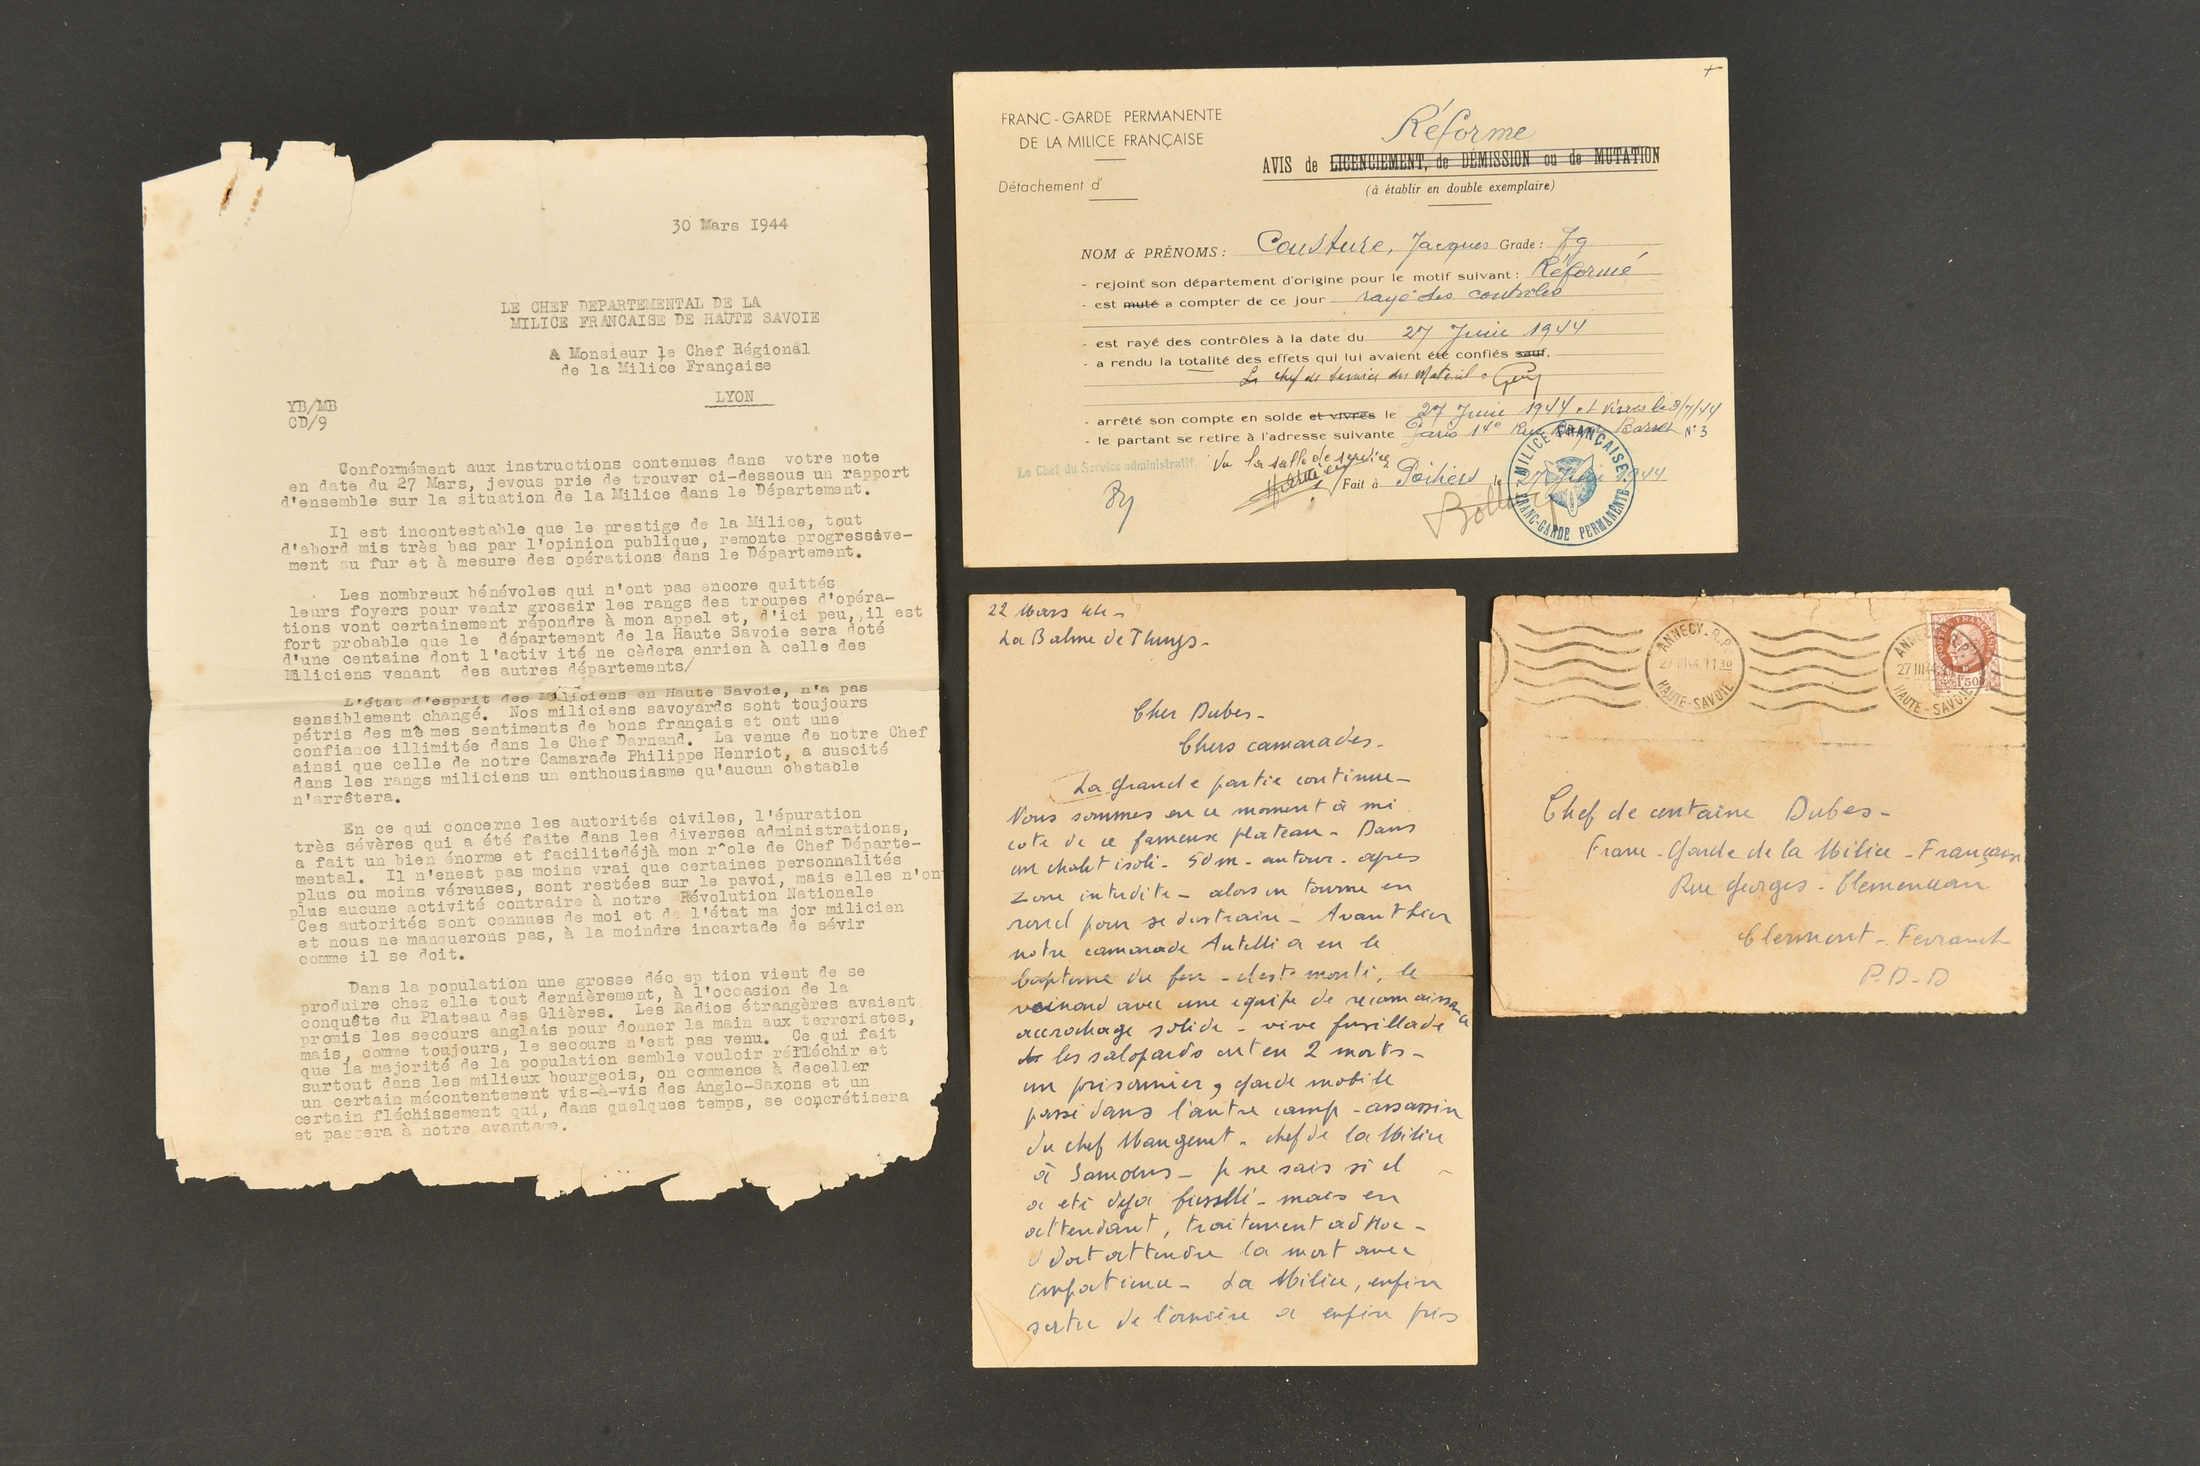 30 Mars 1944
LE CHEF DEPARTEMENTAL DE LA
MILICE FRANCAISE DE HAUTE SAVOIE
A Monsieur le Chef Régional
de la Milice Française
LYON
YB/MB
CD/9
Conformément aux instructions contenues dans votre note
en date du 27 Mars, jevous prie de trouver ci-dessous un rapport
d'ensemble sur la situation de la Milice dans le Département.
Il est incontestable que le prestige de la Milice, tout
d'abord mis très bas par l'opinion publique, remonte progressive-
ment au fur et à mesure des opérations dans le Département.
Les nombreux bénévoles qui n'ont pas encore quittés
leurs foyers pour venir grossir les rangs des troupes d'opéra-
tions vont certainement répondre à mon appel et, d'ici peu, il est
fort probable que le département de la Haute Savoie sera doté
d'une centaine dont l'activ ité ne cèdera enrien à celle des
Miliciens venant des autres départements/
L'état d'esprit des Miliciens en Haute Savoie, n'a pas
sensiblement changé. Nos miliciens savoyards sont toujours
pétris des mê mes sentiments de bons français et ont une
confiance illimitée dans le Chef Darnand. La venue de notre Chef
ainsi que celle de notre Camarade Philippe Henriot, a suscité
dans les rangs miliciens un enthousiasme qu'aucun obstacle
n'arrêtera.
En ce qui concerne les autorités civiles, l'épuration
très sévères qui a été faite dans les diverses administrations,
a fait un bien énorme et facilitedéjà mon r^ole de Chef Départe-
mental. Il n'enest pas moins vrai que certaines personnalités
plus ou moins véreuses, sont restées sur le pavoi, mais elles n'on
plus aucune activité contraire à notre Révolution Nationale
Ces autorités sont connues de moi et de l'état ma jor milicien
et nous ne manquerons pas, à la moindre incartade de sévir
comme il se doit.
Dans la population une grosse déc ep tion vient de se
produire chez elle tout dernièrement, à l'occasion de la
conquête du Plateau des Glières. Les Radios étrangères avaient
promis les secours anglais pour donner la main aux terroristes,
mais, comme toujours, le secours n'est pas venu. Ce qui fait
que la majorité de la population semble vouloir réfléchir et
surtout dans les milieux bourgeois, on commence à deceller
un certain mécontentement vis-à-vis des Anglo-Saxons et un
certain fléchissement qui, dans quelques temps, se conçrétisera
et passera à notre avantage.
FRANC-GARDE PERMANENTE
DE LA MILICE FRANÇAISE
Détachement d'
Réforme
AVIS de LICENCIEMENT, de DÉMISSION ou de MUTATION
(à établir en double exemplaire)
NOM & PRÉNOMS : Cousture, Jacques Grade : fg
- rejoint son département d'origine pour le motif suivant : Réformé
- est muté a compter de ce jour rayé des contrôles
- est rayé des contrôles à la date du 27 Juin 1944
- a rendu la totalité des effets qui lui avaient été confiés sauf.
Le chef de service du Matériel
- arrêté son compte en solde et vivres le 27 Juin 1944 et vivres le 3/7/44
- le partant se retire à l'adresse suivante Paris 14e Rue Barset N° 3
Le Chef du Service administratif,
Vu la salle de service
Fait à Poitiers le 27 Juin 1944
MILICE FRANÇAISE
FRANC-GARDE PERMANENTE
22 Mars 44 -
La Balme de Thuys -
Cher Dubes -
Chers camarades -
La Grande partie continue -
Nous sommes en ce moment à mi
cote de ce fameux plateau - Dans
un chalet isolé - 50 m - autour - apres
zone interdite - alors on tourne en
rond pour se distraire - Avant hier
notre camarade Autelli a eu le
bapteme du feu - c'est monté, le
veinard avec une equipe de reconnaissance
accrochage solide - vive fusillade
les salopards ont eu 2 morts -
un prisonnier, garde mobile
passé dans l'autre camp - assassin
du chef Maugenet - chef de la Milice
à Samoens - Je ne sais si il
a eté deja fusillé - mais en
attendant, traitement ad hoc -
doit attendre la mort avec
impatience - La Milice, enfin
sortie de l'ornière a enfin pris
ANNECY-R.P.
27 III 44. 11 30
HAUTE-SAVOIE
ANNECY-R.P.
27 III 44
HAUTE-SAVOIE
POSTES FRANÇAISES
1F50
Chef de centaine Dubes -
Franc - Garde de la Milice - Française
Rue Georges - Clemenceau
Clermont - Ferrand
P.D-D